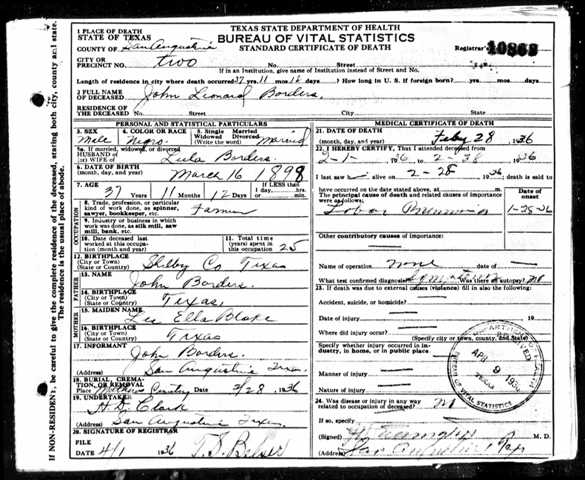 TEXAS STATE DEPARTMENT OF HEALTH
BUREAU OF VITAL STATISTICS
STANDARD CERTIFICATE OF DEATH
1 PLACE OF DEATH
STATE OF TEXAS
COUNTY OF San Augustine
CITY OR PRECINCT NO. two No. Street
Registrar's
If in an Institution, give name of Institution instead of Street and No.
Length of residence in city where death occurred 37 yrs. 11 mos. 12 days? How long in U. S. if foreign born? yrs. mos. days
2 FULL NAME OF DECEASED John Leonard Borders
RESIDENCE OF THE DECEASED No. Street City State
PERSONAL AND STATISTICAL PARTICULARS
3. SEX Male
4. COLOR OR RACE Negro
5. Single Married Widowed Divorced (Write the word) Married
5a. If married, widowed, or divorced
HUSBAND OF (or) WIFE OF Lula Borders
6. DATE OF BIRTH (month, day, and year) March 16 1898
7. AGE 37 Years 11 Months 12 Days
If LESS than 1 day
hours
min.
OCCUPATION
8. Trade, profession, or particular kind of work done, as spinner, sawyer, bookkeeper, etc. Farmer
9. Industry or business in which work was done, as silk mill, saw mill, bank, etc.
10. Date deceased last worked at this occupation (month and year)
11. Total time (years) spent in this occupation 25
12. BIRTHPLACE (City or Town) (State or County) Shelby Co Texas
FATHER
13. NAME John Borders
14. BIRTHPLACE (City or Town) (State or Country) Texas
MOTHER
15. MAIDEN NAME Ella Blake
16. BIRTHPLACE (City or Town) (State or Country) Texas
17. INFORMANT John Borders
(Address) San Augustine Texas
18. BURIAL, CREMATION, OR REMOVAL
Place Date 2/28 1936
19. UNDERTAKER H. D. Clark
(Address) San Augustine Texas
20. SIGNATURE OF REGISTRAR
FILE DATE 4/1 36 T. S.
MEDICAL CERTIFICATE OF DEATH
21. DATE OF DEATH (month, day, and year) Feby 28 1936
22. I HEREBY CERTIFY, That I attended deceased from 2-1- 36 to 2-28 1936
I last saw h alive on 2-28 1936, death is said to have occurred on the date stated above, at m.
The principal cause of death and related causes of importance were as follows:
Date of onset
Lobar Pneumonia 1-25-36
Other contributory causes of importance:
Name of operation none Date of
What test confirmed diagnosis? Symptoms Was there an autopsy? no
23. If death was due to external causes (violence) fill in also the following:
Accident, suicide, or homicide?
Date of injury 19
Where did injury occur?
(Specify city or town, county, and State)
Specify whether injury occurred in industry, in home, or in public place.
Manner of injury
Nature of injury
24. Was disease or injury in any way related to occupation of deceased? no
If so, specify
(Signed) M. D.
(Address) San Augustine Tex
RECEIVED
APR 9 1936
TEXAS
BUREAU OF VITAL STATISTICS